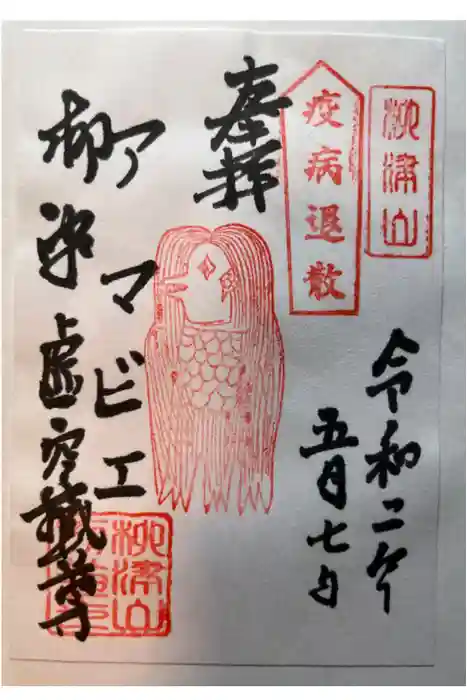 柳津山
疫病退散
奉拝
令和二年
五月七日
アマビエ
柳津虚空蔵尊
柳津山